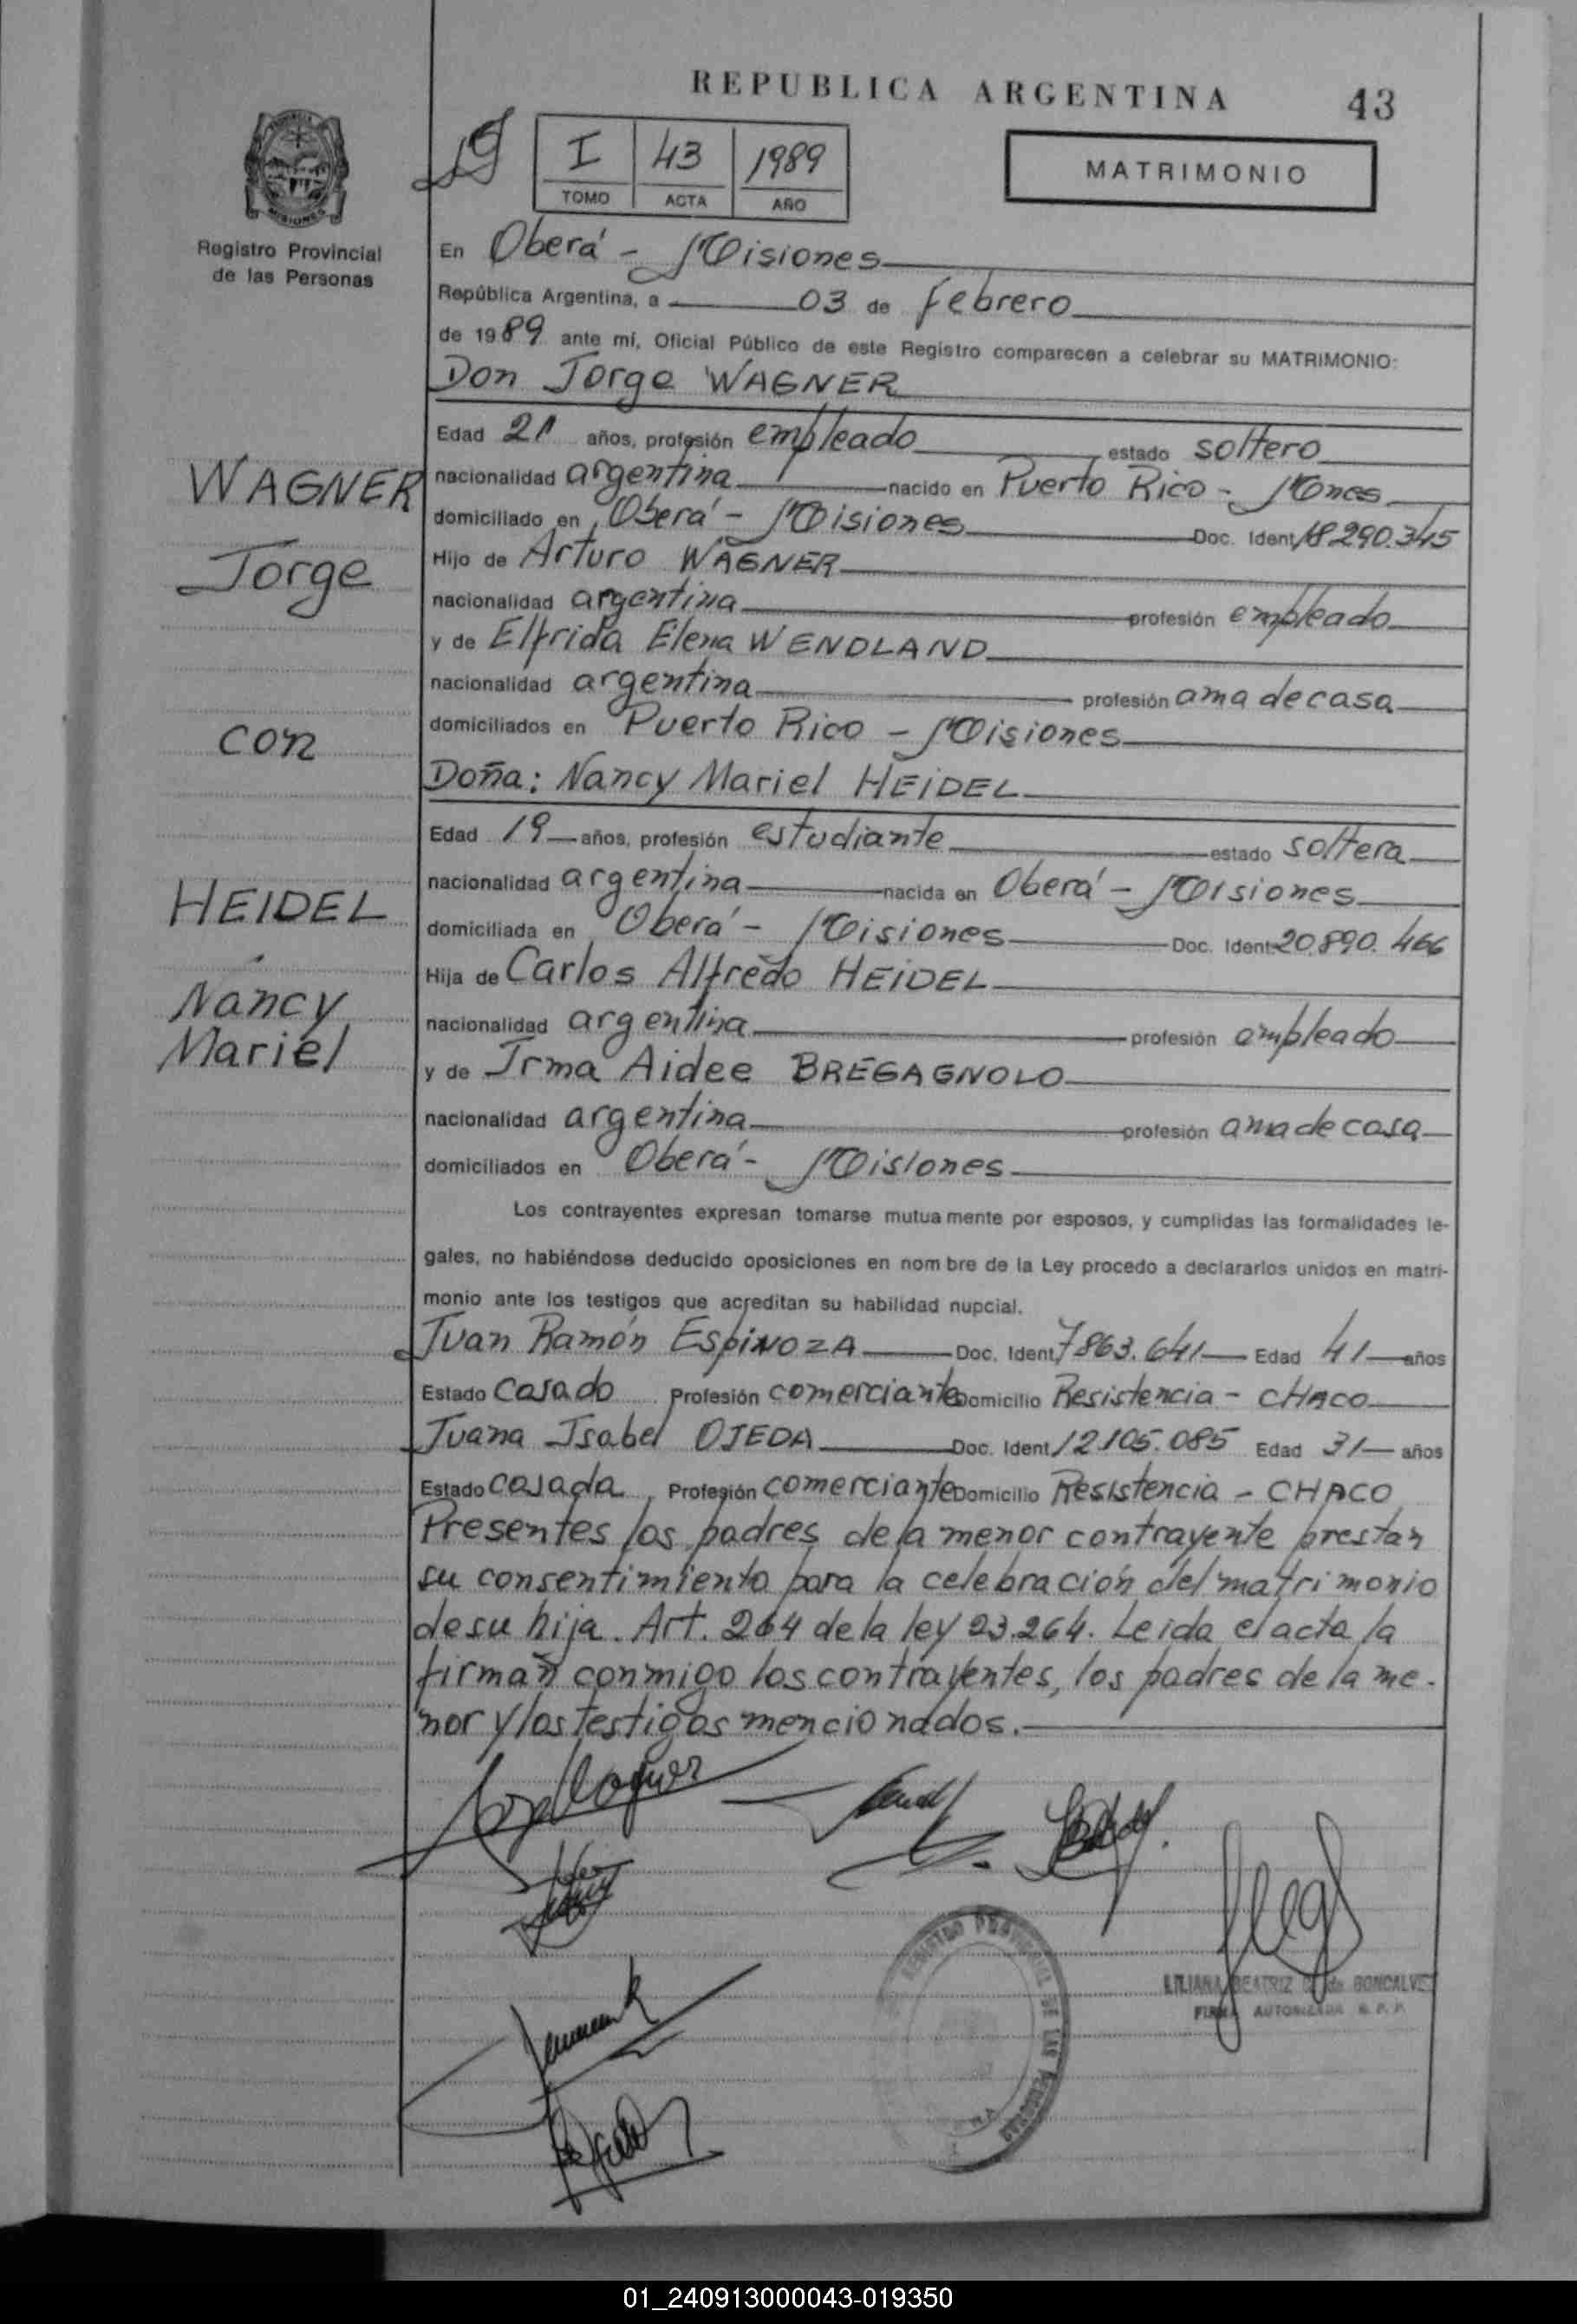 REPUBLICA ARGENTINA
43
I 43 1989
TOMO ACTA AÑO
MATRIMONIO
Registro Provincial
de las Personas
En Oberá - Misiones
República Argentina, a 03 de febrero
de 1989 ante mí, Oficial Público de este Registro comparecen a celebrar su MATRIMONIO:
Don Jorge WAGNER
Edad 21 años, profesión empleado estado soltero
nacionalidad argentina nacido en Puerto Rico - Mones
domiciliado en Oberá - Misiones Doc. Ident. 18.290.345
Hijo de Arturo WAGNER
nacionalidad argentina profesión empleado
y de Elfrida Elena WENDLAND
nacionalidad argentina profesión ama de casa
domiciliados en Puerto Rico - Misiones
Doña: Nancy Mariel HEIDEL
Edad 19 años, profesión estudiante estado soltera
nacionalidad argentina nacida en Oberá - Misiones
domiciliada en Oberá - Misiones Doc. Ident. 20.890.466
Hija de Carlos Alfredo HEIDEL
nacionalidad argentina profesión empleado
y de Irma Aidee BREGAGNOLO
nacionalidad argentina profesión ama de casa
domiciliados en Oberá - Misiones
WAGNER
Jorge
con
HEIDEL
Nancy
Mariel
Los contrayentes expresan tomarse mutuamente por esposos, y cumplidas las formalidades le-
gales, no habiéndose deducido oposiciones en nombre de la Ley procedo a declararlos unidos en matri-
monio ante los testigos que acreditan su habilidad nupcial.
Juan Ramón ESPINOZA Doc. Ident. 7863.641 Edad 41 años
Estado Casado Profesión comerciante Domicilio Resistencia - CHACO
Juana Isabel OJEDA Doc. Ident. 12.105.085 Edad 31 años
Estado casada Profesión comerciante Domicilio Resistencia - CHACO
Presentes los padres de la menor contrayente prestan
su consentimiento para la celebración del matrimonio
de su hija. Art. 264 de la ley 23.264. Leida el acta la
firman conmigo los contrayentes, los padres de la me-
nor y los testigos mencionados.
REGISTRO PROVINCIAL DE LAS PERSONAS
LILIANA BEATRIZ de GONCALVES
FIRMA AUTORIZADA R. P. P.
01_240913000043-019350